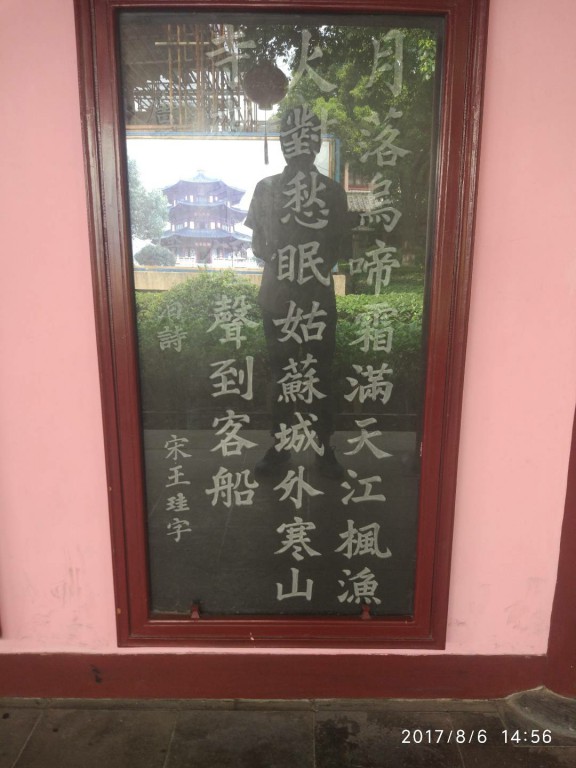 月落烏啼霜滿天江楓漁
火對愁眠姑蘇城外寒山
寺聲到客船
泊詩 宋王珪字
2017/8/6 14:56